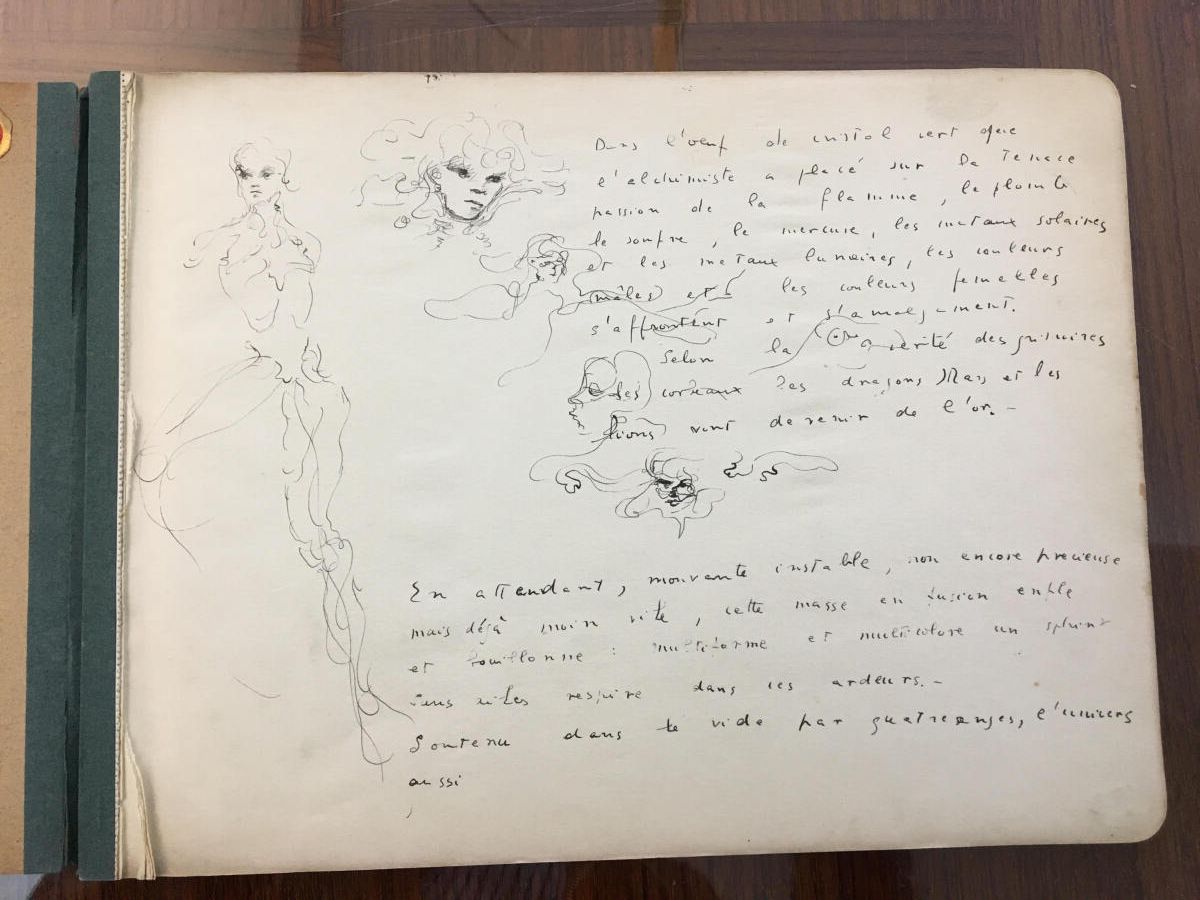 Dans l'œuf de cristal vert que
l'alchimiste a placé sur la tenace
passion de la flamme, le plomb
le soufre, le mercure, les métaux solaires
et les métaux lunaires, les couleurs
mâles et les couleurs femelles
s'affrontent et s'amalgament.
Selon la vérité des grimoires
les corbeaux les dragons Mars et les
lions vont devenir de l'or. -
En attendant, mouvante instable, non encore precieuse
mais déjà moin vile, cette masse en fusion enfle
et bouillonne : multiforme et multicolore un sphinx
sans ailes respire dans ces ardeurs. -
Soutenu dans le vide par quatre anges, l'univers
aussi